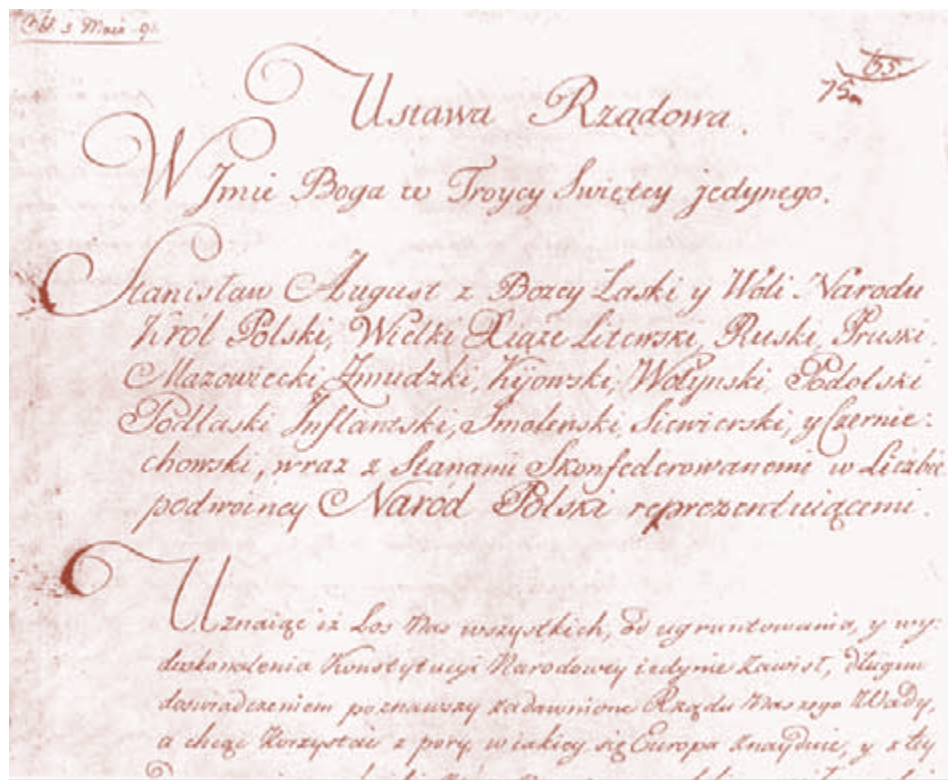 3 Maia 91.
155.
75.
Ustawa Rządowa.
W Jmie Boga w Troycy Swiętey jedynego.
Stanisław August z Bozey Łaski y Woli Narodu
Król Polski, Wielki Xiąże Litewski, Ruski, Pruski.
Mazowiecki, Zmudzki, Kijowski, Wołynski, Podolski
Podlaski Jnflantski, Smolenski, Siewierski, y Czernie:
chowski, wraz z Stanami Skonfederowanemi w Liczbie
podwoiney Naród Polski reprezentuiącemi.
Uznaiąc iż Los Nas wszystkich, od ugruntowania, y wy:
doskonalenia Konstytucyi Narodowey iedynie zawisł, długim
doswiadczeniem poznawszy zadawnione Rządu Naszego Wady,
a chcąc korzystać z pory, w iakiey się Europa znayduie, y z tey